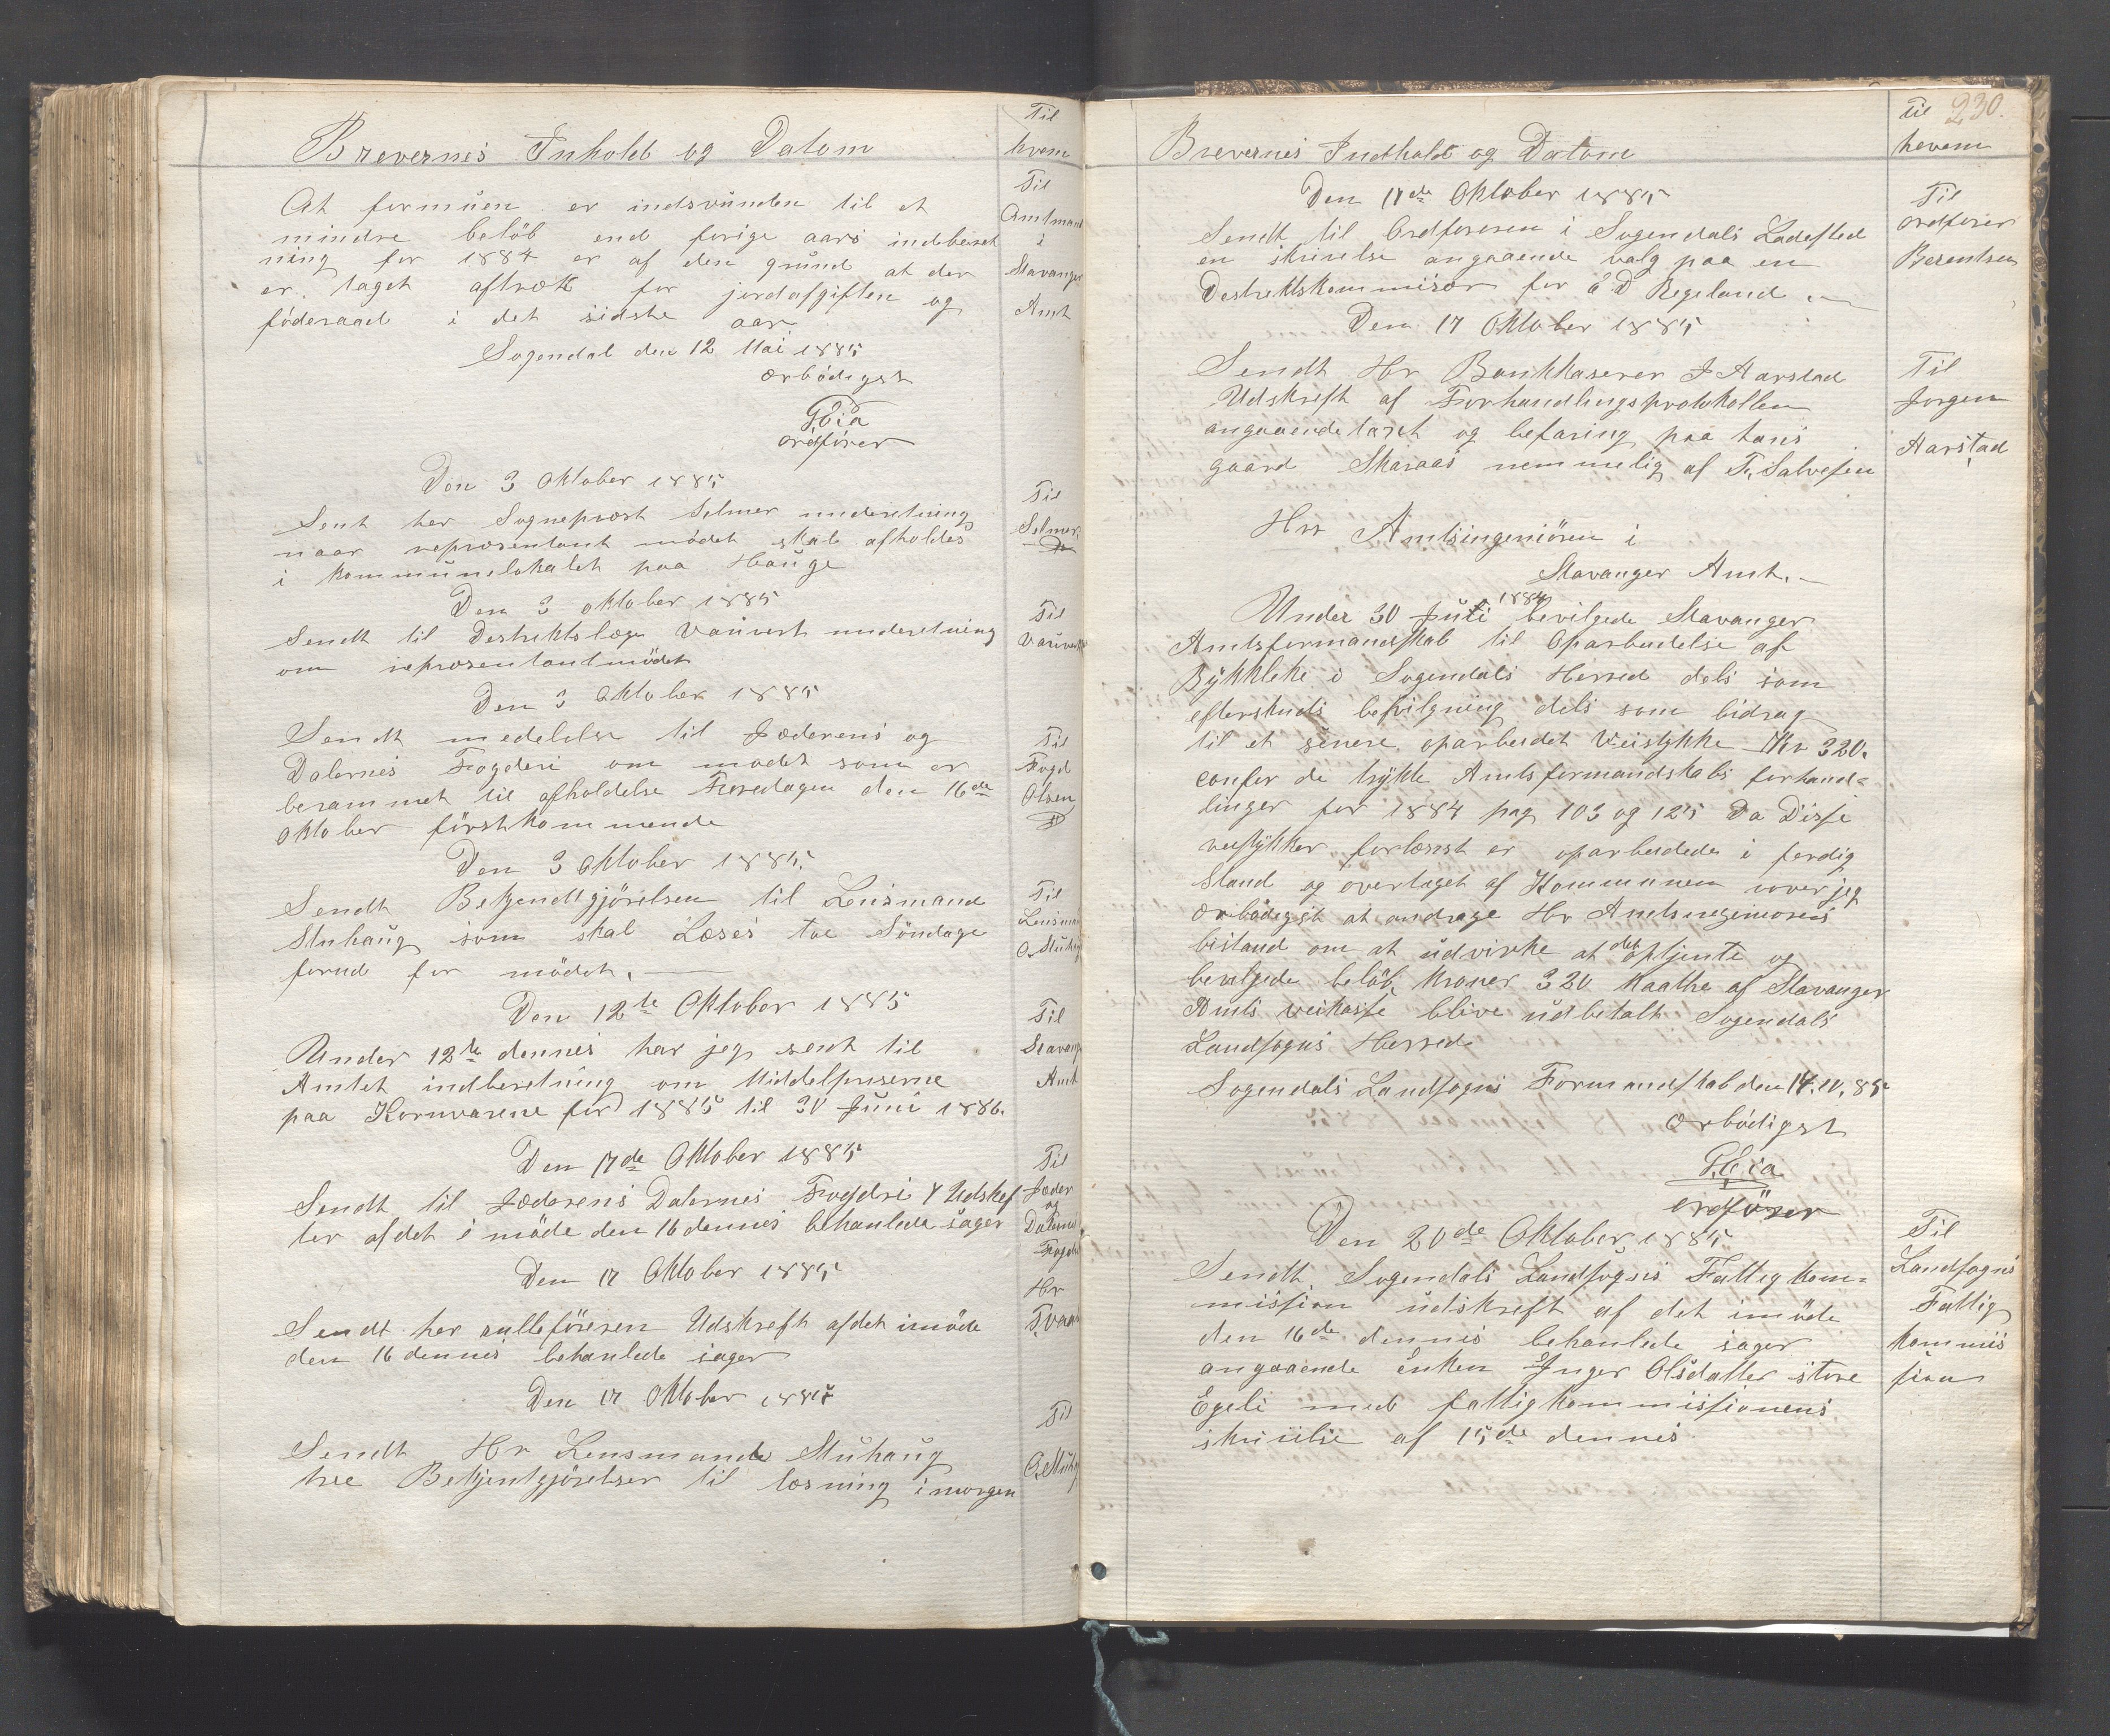 Brevernes Inhold og Datom
Til
hvem
At formuen er indsvunden til et
mindre beløb end forige aars indberet
ning for 1884 er af den grund at der
er taget aftræk for jordafgiften og
føderaad i det sidste aar
Til
Amtmand
i
Stavanger
Amt
Sogendal den 12 Mai 1885
ærbødigst
ordfører
Den 3 Oktober 1885
Sent her Sogneprest Selmer underetning
naar representant mødet skal afholdes
i kommunelokalet paa Hauge
Til
Selmer
Den 3 oktober 1885
Sendt til Destriktslæge Vauvert underetning
om representantmødet
Til
Den 3 Oktober 1885
Sendt medelelse til Jæderens og
Dalernes Fogderi om mødet som er
berammet til afholdelse Fredagen den 16de
Oktober førstkommende
Til
Fogd
Olsen
Den 3 Oktober 1885.
Sendt Bekjendtgjørelsen til Lensmand
Stuhaug som skal Læses toe Søndage
forud for mødet.
Til
Lensman
Den 12te Oktober 1885
Under 12te dennes har jeg sent til
Amtet indberetning om Middelpriserne
paa Kornvarene for 1885 til 30 Juni 1886.
Til
Stavang
Amt
Den 17de Oktober 1885
Sendt til Jæderens Dalernes Fogdri 4 Udskref
ter af det i møde den 16 dennes behanlede sager
Til
Jæder
og
Dalernes
Fogderi
Den 17 Oktober 1885
Sendt her rulleføreren Udskreft af det i møde
den 16 dennes behanlede sager
Hr
Den 17 Oktober 1885
Sendt Hr Lensmande Stuhaug
tree Bekjentgjørelser til læsning i morgen
Til
230.
Brevernes Indhold og Datom
Til
hevem
Den 17de Oktober 1885
Sendt til Ordføreren i Sogendals Ladested
en skrivelse angaaende valg paa en
Destrektskommisær for E D Regeland.
Til
ordfører
Berentsen
Den 17 Oktober 1885
Sendt Hr Bankkaserer J Aarstad
Udskreft af Forhandlingsprotokollen
angaaende taxt og befaring paa hans
gaard Skaraas nemmelig af T. Salvesen
Til
Jørgen
Aarstad
Hrr Amtsingeniøren i
Stavanger Amt.
Under 30 Juli 1884 bevilgede Stavanger
Amtsformandskab til Oparbeidelse af
i Sogendals Herred dels som
efterskuds bevilgning dels som bidrag
til et senere oparbeidet Veistykke Kr 320.
confer de trykte Amtsformandskabs forhand-
linger for 1884 pag 103 og 125 Da Disse
veistykker forlængst er oparbeidede i ferdig
stand og overtaget af Kommunen vover jeg
ærbødigst at andrage Hr Amtsingeniørens
bistand om at udvirke at det optjente og
bevilgede beløb kroner 320 maatte af Stavanger
Amts veikasse blive udbetalt Sogendals
Landsogns Herred
Sogendals Landsogns Formandskab den 17.10.85
ærbødigst
ordfører
Den 20de Oktober 1885
Sendt Sogendals Landsogns Fattigkom-
mission udskreft af det i møde
den 16de dennes behanlede sager
angaaende enken Inger Olsdatter store
Egeli med fattigkommissionens
skrivelse af 15de dennes
Til
Landsogns
Fattig
kommis
sion